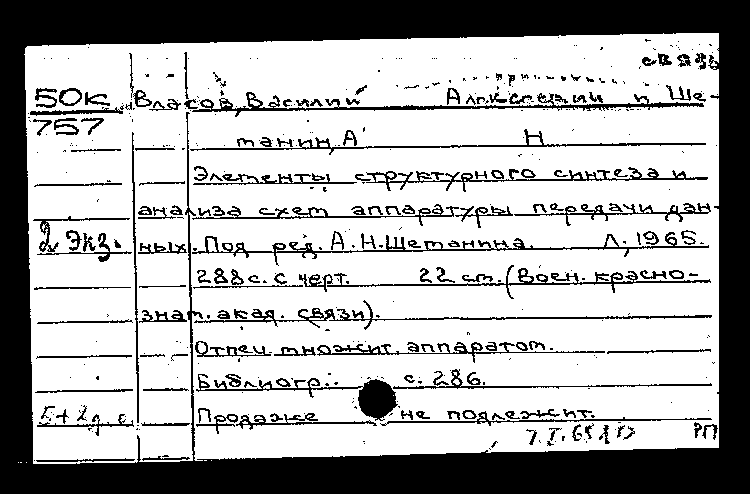 50к Власов, Василий Алексеевич и Ще-
757
танин, А Н
Элементы структурного синтеза и
анализа схем аппаратуры передачи дан-
2 экз. ных. Под ред. А. Н. Щетанина. Л., 1965.
288 с. с черт. 22 см. (Воен. красно-
знам. акад. связи).
Отпеч. множит. аппаратом.
Библиогр.: с. 286.
Продаже не подлежит.
РП